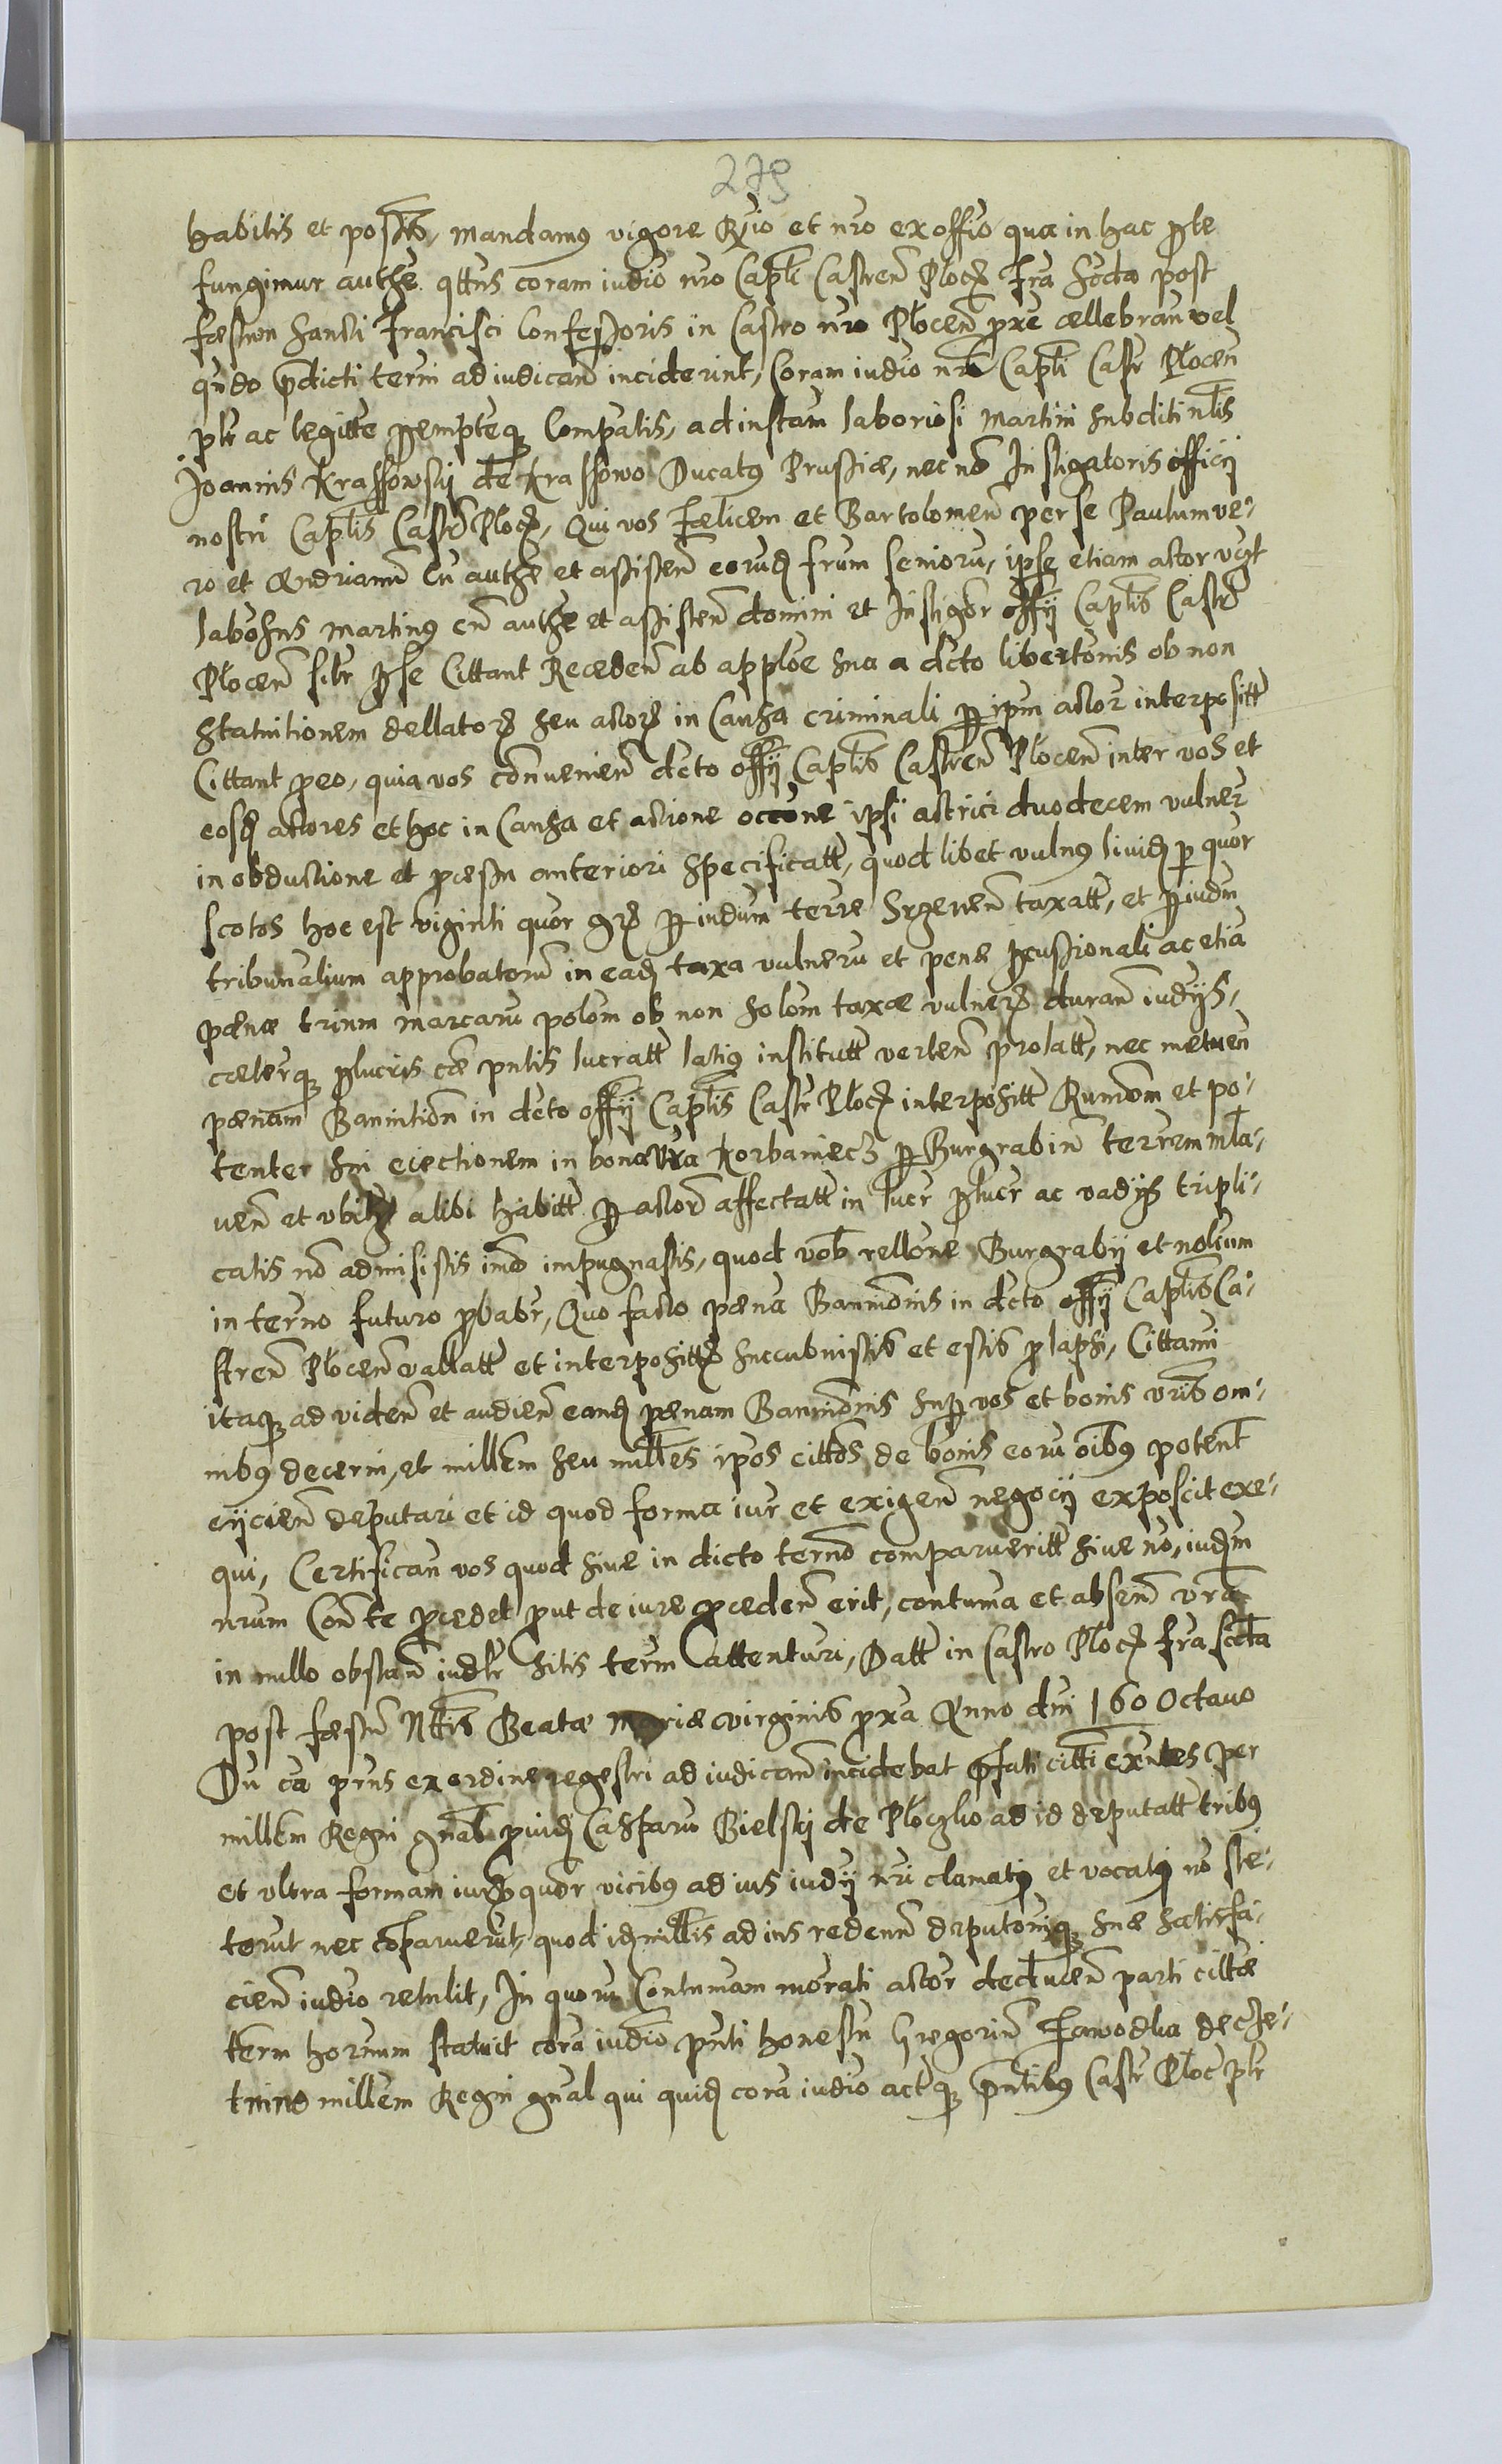 279
habilis et possis, mandamus vigore Rgio et nro ex offio qua in hac pte
fungimur authe qttns coram iudio nro Captli Castren Plocen fra scda post
festum sancti Francisci Confessoris in Castro nro Plocen pxe cellebran vel
qndo pdicti termi ad iudican inciderint, Coram iudio nro Captli Castr Plocen
plr ac legitte pempteq Compatis, ad instam laboriosi Martini subditi nlis
Joannis Krassowskj de Krassowo Ducatus Prussiæ, nec no Instigatoris officij
nostri Captlis Castr Ploc, Qui vos Fælicem et Bartolomeu per se Paulum ve-
ro et Andrianu cu authe et assisten eorud frum senioru, ipse etiam actor vgt
labosus Martinus cu authe et assisten domini et Instigor offij Captlis Castr
Plocen sibr pse Cittant Receden ab apploe sua a dcto libertonis ob non
statuitionem dellators seu actors in Causa criminali p ipm actor interpositt
Cittant pro eo, quia vos convenien dcto offij Captlis Castren Plocen inter vos et
eosd actores et hoc in Causa et actione occone ipsi actrici duodecem vulner
in obductione et pcessu anteriori specificatt, quod libet vulnus livid p quor
scotos hoc est viginti quor grs p iudium terræ taxatt, et p iudm
tribunalium approbatoru in ead taxa vulneru et pene pcussionali ac etia
pænæ trium marcaru polom ob non solom taxæ vulners duran iudijs,
cæterq plucris cæ pntis lucratt latius institutt verten prolatt, nec metuen
pænam Bannition in dcto offij Captlis Castr Ploc interpositt Rumom et po-
tenter sui eiectionem in bona vra Korbaniecz p Burgrabiu terrem mla-
uen et vbi alibi habitt p actor affectatt in lucr plucr ac vadijs tripli-
catis no admisistis imo impugnastis, quod vob rellone Burgrabij et noleum
in termo futuro pbabr, Quo facto pæna Bannionis in dcto offij Captlis Ca-
stren Plocen vallatt et interposittis succubuistis et estis plapsi, Cittami
itaq ad viden et audien eand pænam Bannionis sup vos et bonis vris om-
nibus decerni, et millem seu milles ipos cittos de bonis eoru oibus potent
eijcien deputari et id quod forma iur et exigen negocij exposcit exe-
qui, Certifican vos quod siue in dicto termo comparueritt siue no, iudm
nrum Conte pcedet put de iure pceden erit, contuma et absen vra
in nullo obstan iudtr sitis term attenturi, Datt in Castro Ploc fra scda
post festu Nttis Beatæ Mariæ virginis pxa Anno dni 160 Octauo
Du ca prns ex ordine regestri ad iudicam incidebat pfati citti exntes per
millem Regni gnal prouid Casparu Bielskj de Ploczko ad id deputatt tribus
et vltra formam iuris quor vicibus ad ius iudij nri clamati et vocati no ste-
terut nec coparuerut, quod id millis ad ius redeun deputoniq suæ satisfa-
cien iudio retulit, In quoru Contumam morati actor deducen parti cittæ
term hornum statuit cora iudio pnti honestu Gregoriu Fawodka de Je-
tmino millem Regni gnal qui quid cora iudio actq pntibus Castr Ploc plr